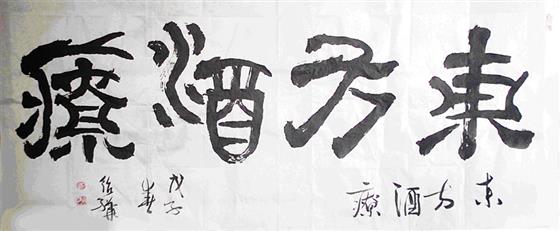 東方酒療
东方酒療
戊子
春